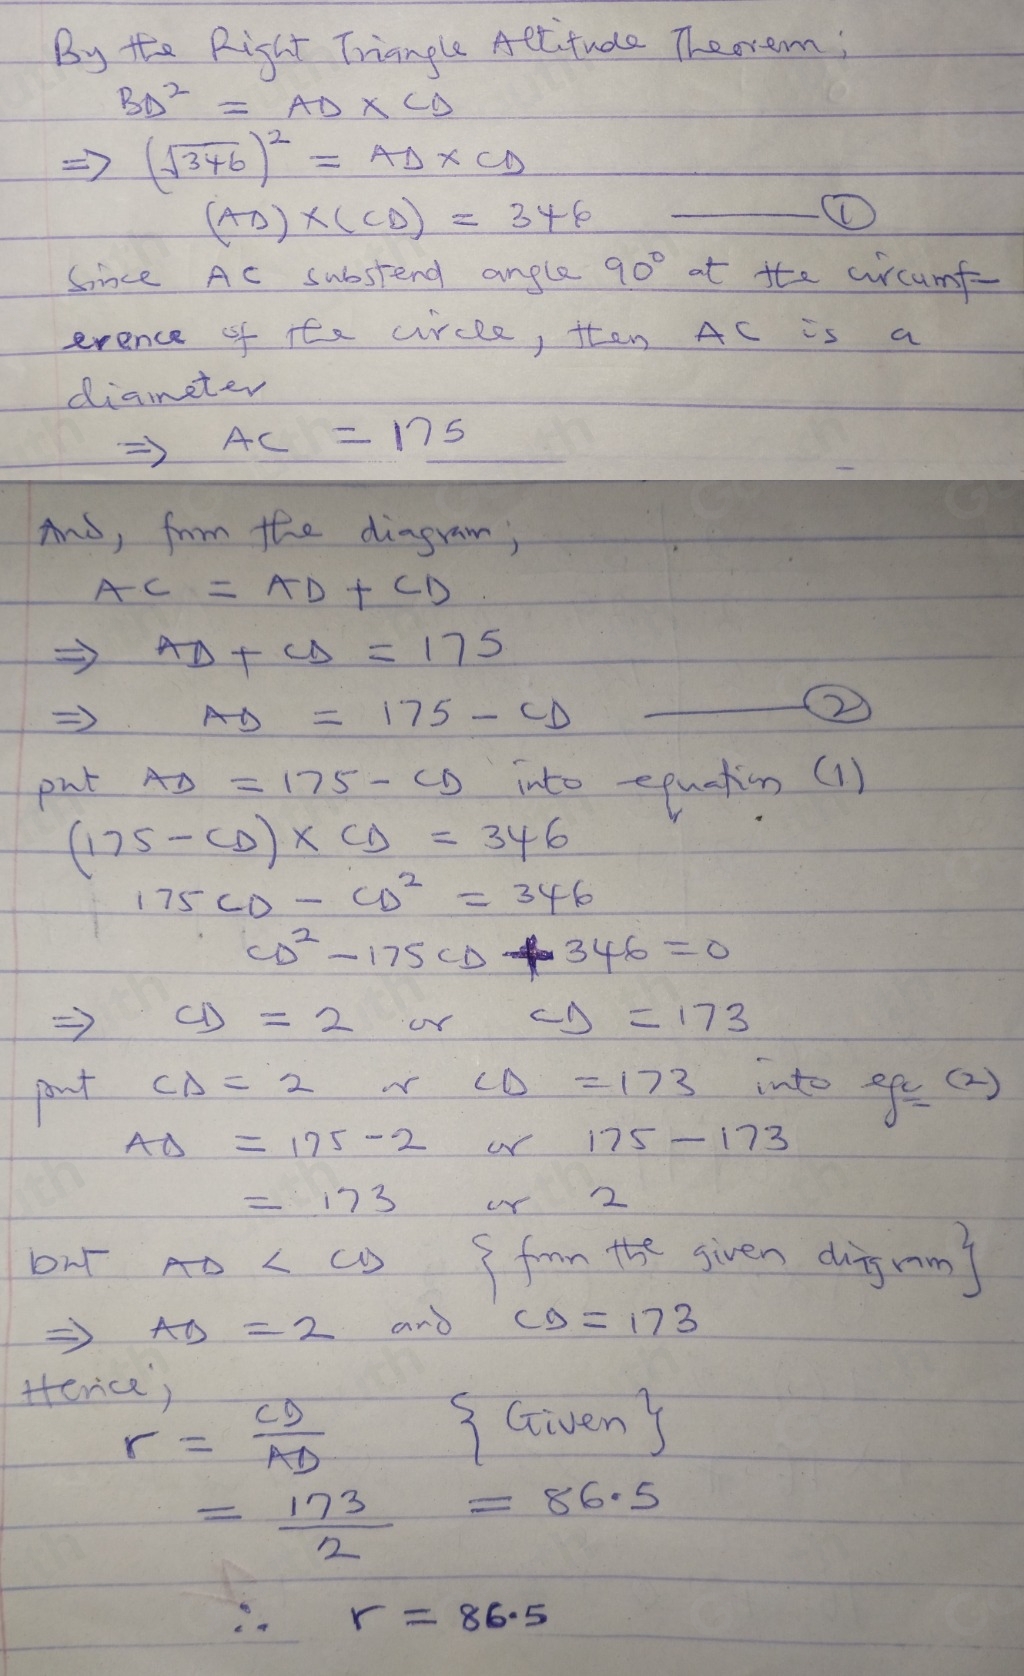 By the Right Triangle Altitude Theorem;
BD² = AD × CD
⇒ (√346)² = AD × CD
(AD) × (CD) = 346 —— ①
Since AC substend angle 90° at the circumf-
erence of the circle, then AC is a
diameter
⇒ AC = 175
And, from the diagram;
AC = AD + CD.
⇒ AD + CD = 175
⇒ AD = 175 - CD —— ②
put AD = 175 - CD into equation (1)
(175 - CD) × CD = 346
175CD - CD² = 346
CD² - 175CD + 346 = 0
⇒ CD = 2 or CD = 173
put CD = 2 or CD = 173 into eqn (2)
AD = 175 - 2 or 175 - 173
= 173 or 2
but AD < CD {from the given diagram}
⇒ AD = 2 and CD = 173
Hence,
r = CD/AD {Given}
= 173/2 = 86.5
∴ r = 86.5